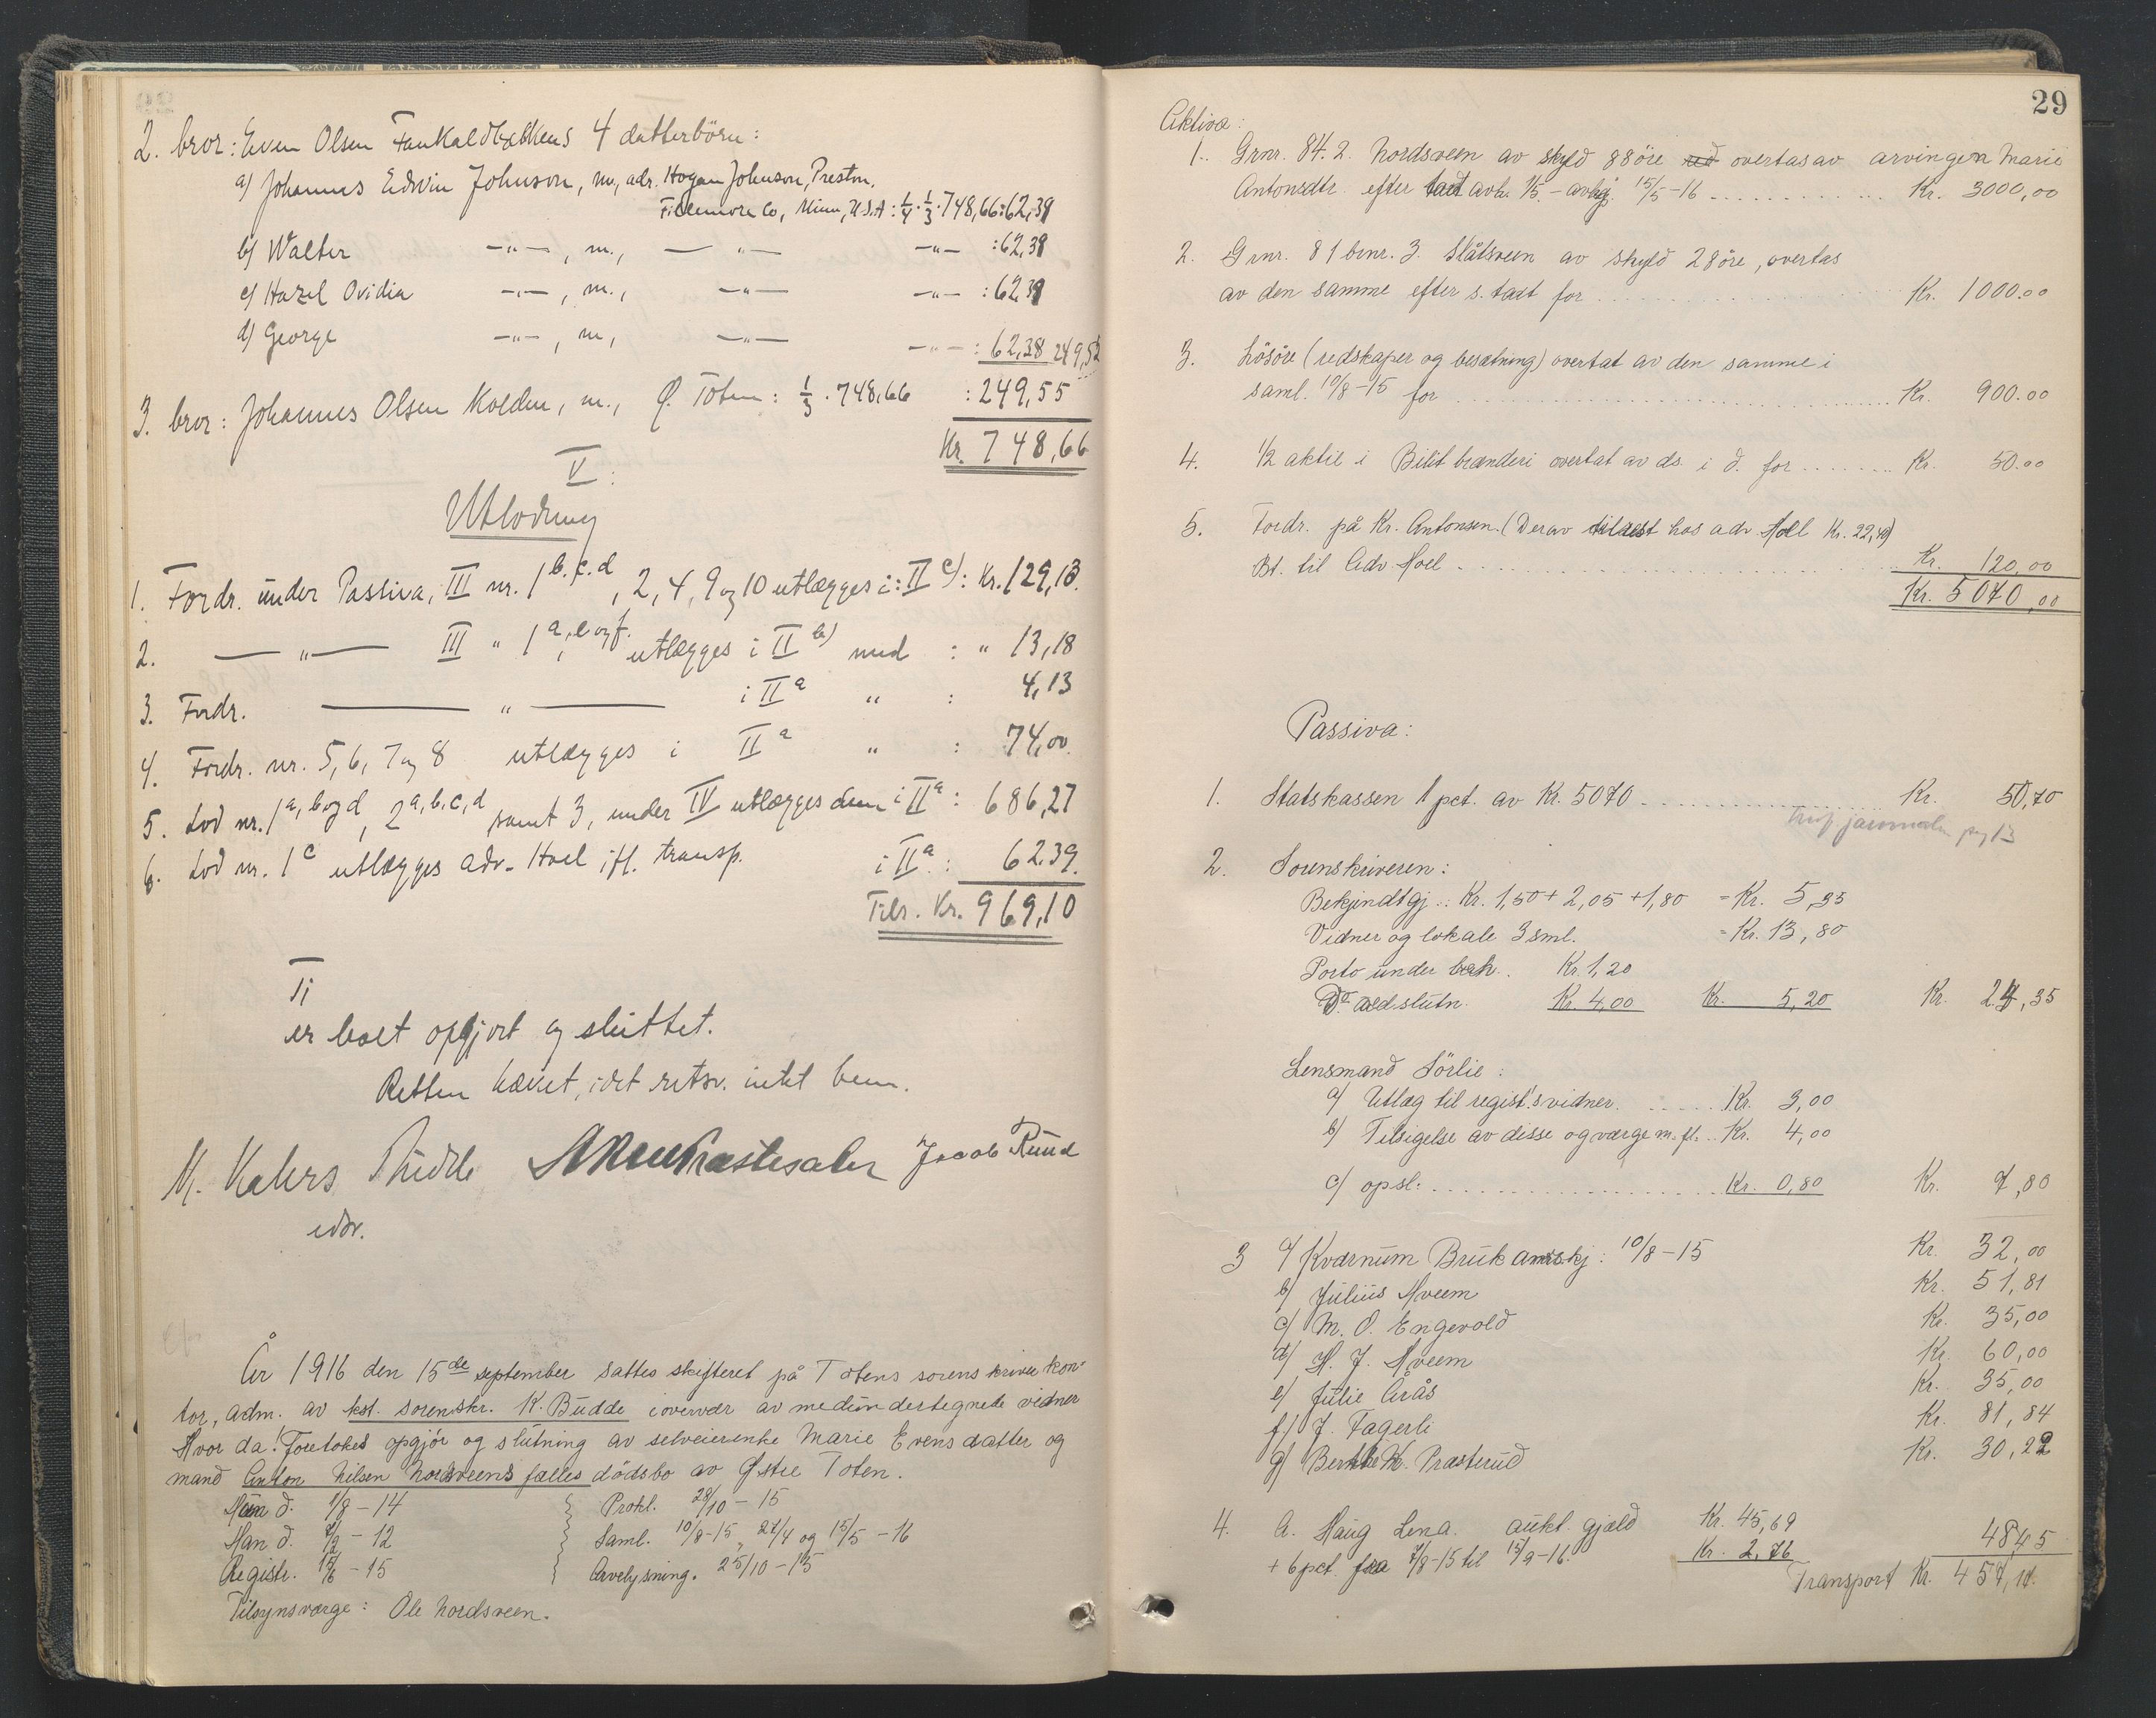 2. bror: Even Olsen Fankaldbakkens 4 datterbörn:
a) Johannes Edwin Johnson, m., adr. Hogan Johnson, Preston,
Fillemore Co, Minn, U.S.A: 1/4 · 1/3 · 748,66: 62,39
b) Walter —"—, m., — " — —"— : 62,39
c) Hazel Ovidia —"—, m., —"— —"— : 62,39
d) George —"—, m., —"— —"— : 62,38 249,55
3. bror: Johannes Olsen Kolden, m., Ø. Toten: 1/3 · 748,66 : 249,55
Kr. 748,66
V:
Utlodning
1. Fordr. under Passiva, III nr. 1 b.c.d, 2, 4, 9 og 10 utlægges i: II c): Kr. 129,13.
2. — " — III " 1 a, e og f. utlægges i II b) med : " 13,18
3. Fordr. — " — i II a " : 4,13
4. Fordr. nr. 5, 6, 7 og 8 utlægges i II a " : 74,00.
5. Lod nr. 1 a, b og d, 2 a, b, c, d samt 3, under IV utlægges dem i II a: 686,27
6. Lod nr. 1 c utlægges adv. Hoel ifl. transp. i II a.: 62.39.
Tils. Kr. 969,10
Ti
er boet opgjort og sluttet.
Retten hævet, idet retsv. intet bem.
Jacob Ruud
År 1916 den 15de september sattes skifteret på Totens sorenskriverkon-
tor, adm. av kst. sorenskr. K. Budde i overvær av medundertegnede vidner
Hvor da! Foretokes opgjör og slutning av selveierenke Marie Evensdatter og
mand Anton Nilsen Nordsveens fælles dödsbo av Østre Toten.
Hun d. 1/8 – 14 Prokl. 28/10 – 15
Man d. 7/2 – 12 Saml. 10/8 – 15, 27/4 og 15/5 – 16
Registr. 15/6 – 15 Arvelysning. 25/10 – 15
Tilsynsværge: Ole Nordsveen.
29
Aktiva:
1. Grnr. 84. 2. Nordsveen av skyld 88 öre overtas av arvingen Marie
Antonsdtr. efter takst avh. 1/5 – avhj. 15/5 – 16 Kr. 3000,00
2. Grnr. 81 bnr. 3. Slåtsveen av skyld 28 öre, overtas
av den samme efter s. takst for Kr. 1000.00
3. Lösöre (redskaper og besætning) overtat av den samme i
saml. 10/8 – 15 for Kr. 900.00
4. 1/2 aktie i Bilit brænderi overtat av ds. i d. for Kr. 50.00
5. Fordr. på Kr. Antonsen. (Derav tilrest hos adv Hoel Kr. 22,40)
Bt. til Adv Hoel Kr. 120,00
Kr. 5070,00
Passiva:
1. Statskassen 1 pct. av Kr. 5070 Kr. 50,70
2. Sorenskriveren:
Bekjendtgj.: Kr. 1,50 + 2,05 + 1,80 = Kr. 5,35
Vidner og lokale 3 sml. = Kr. 13,80
Porto under beh. Kr. 1,20
Do. ved slutn. Kr. 4,00 Kr. 5,20 Kr. 24,35
Lensmand Sörlie:
a) Utlæg til regist.svidner. Kr. 3,00
b) Tilsigelse av disse og værge m.fl. Kr. 4,00
c) opsl. Kr. 0,80 Kr. 7,80
3 a) Kværnum Bruk anerkj: 10/8 – 15 Kr. 32,00
b) Julius Hveem Kr. 51,81
c) M. O. Engevold Kr. 35,00
d) H. J. Hveem Kr. 60,00
e) Julie Årås Kr. 35,00
f) J. Fagerli Kr. 81,84
g) M. Præsterud Kr. 30,22
4. A. Haug Lena. aukt. gjæld Kr. 45,69
+ 6 pct. fra 7/8 – 15 til 15/9 – 16. Kr. 2,76 48,45
Transport Kr. 457,17.